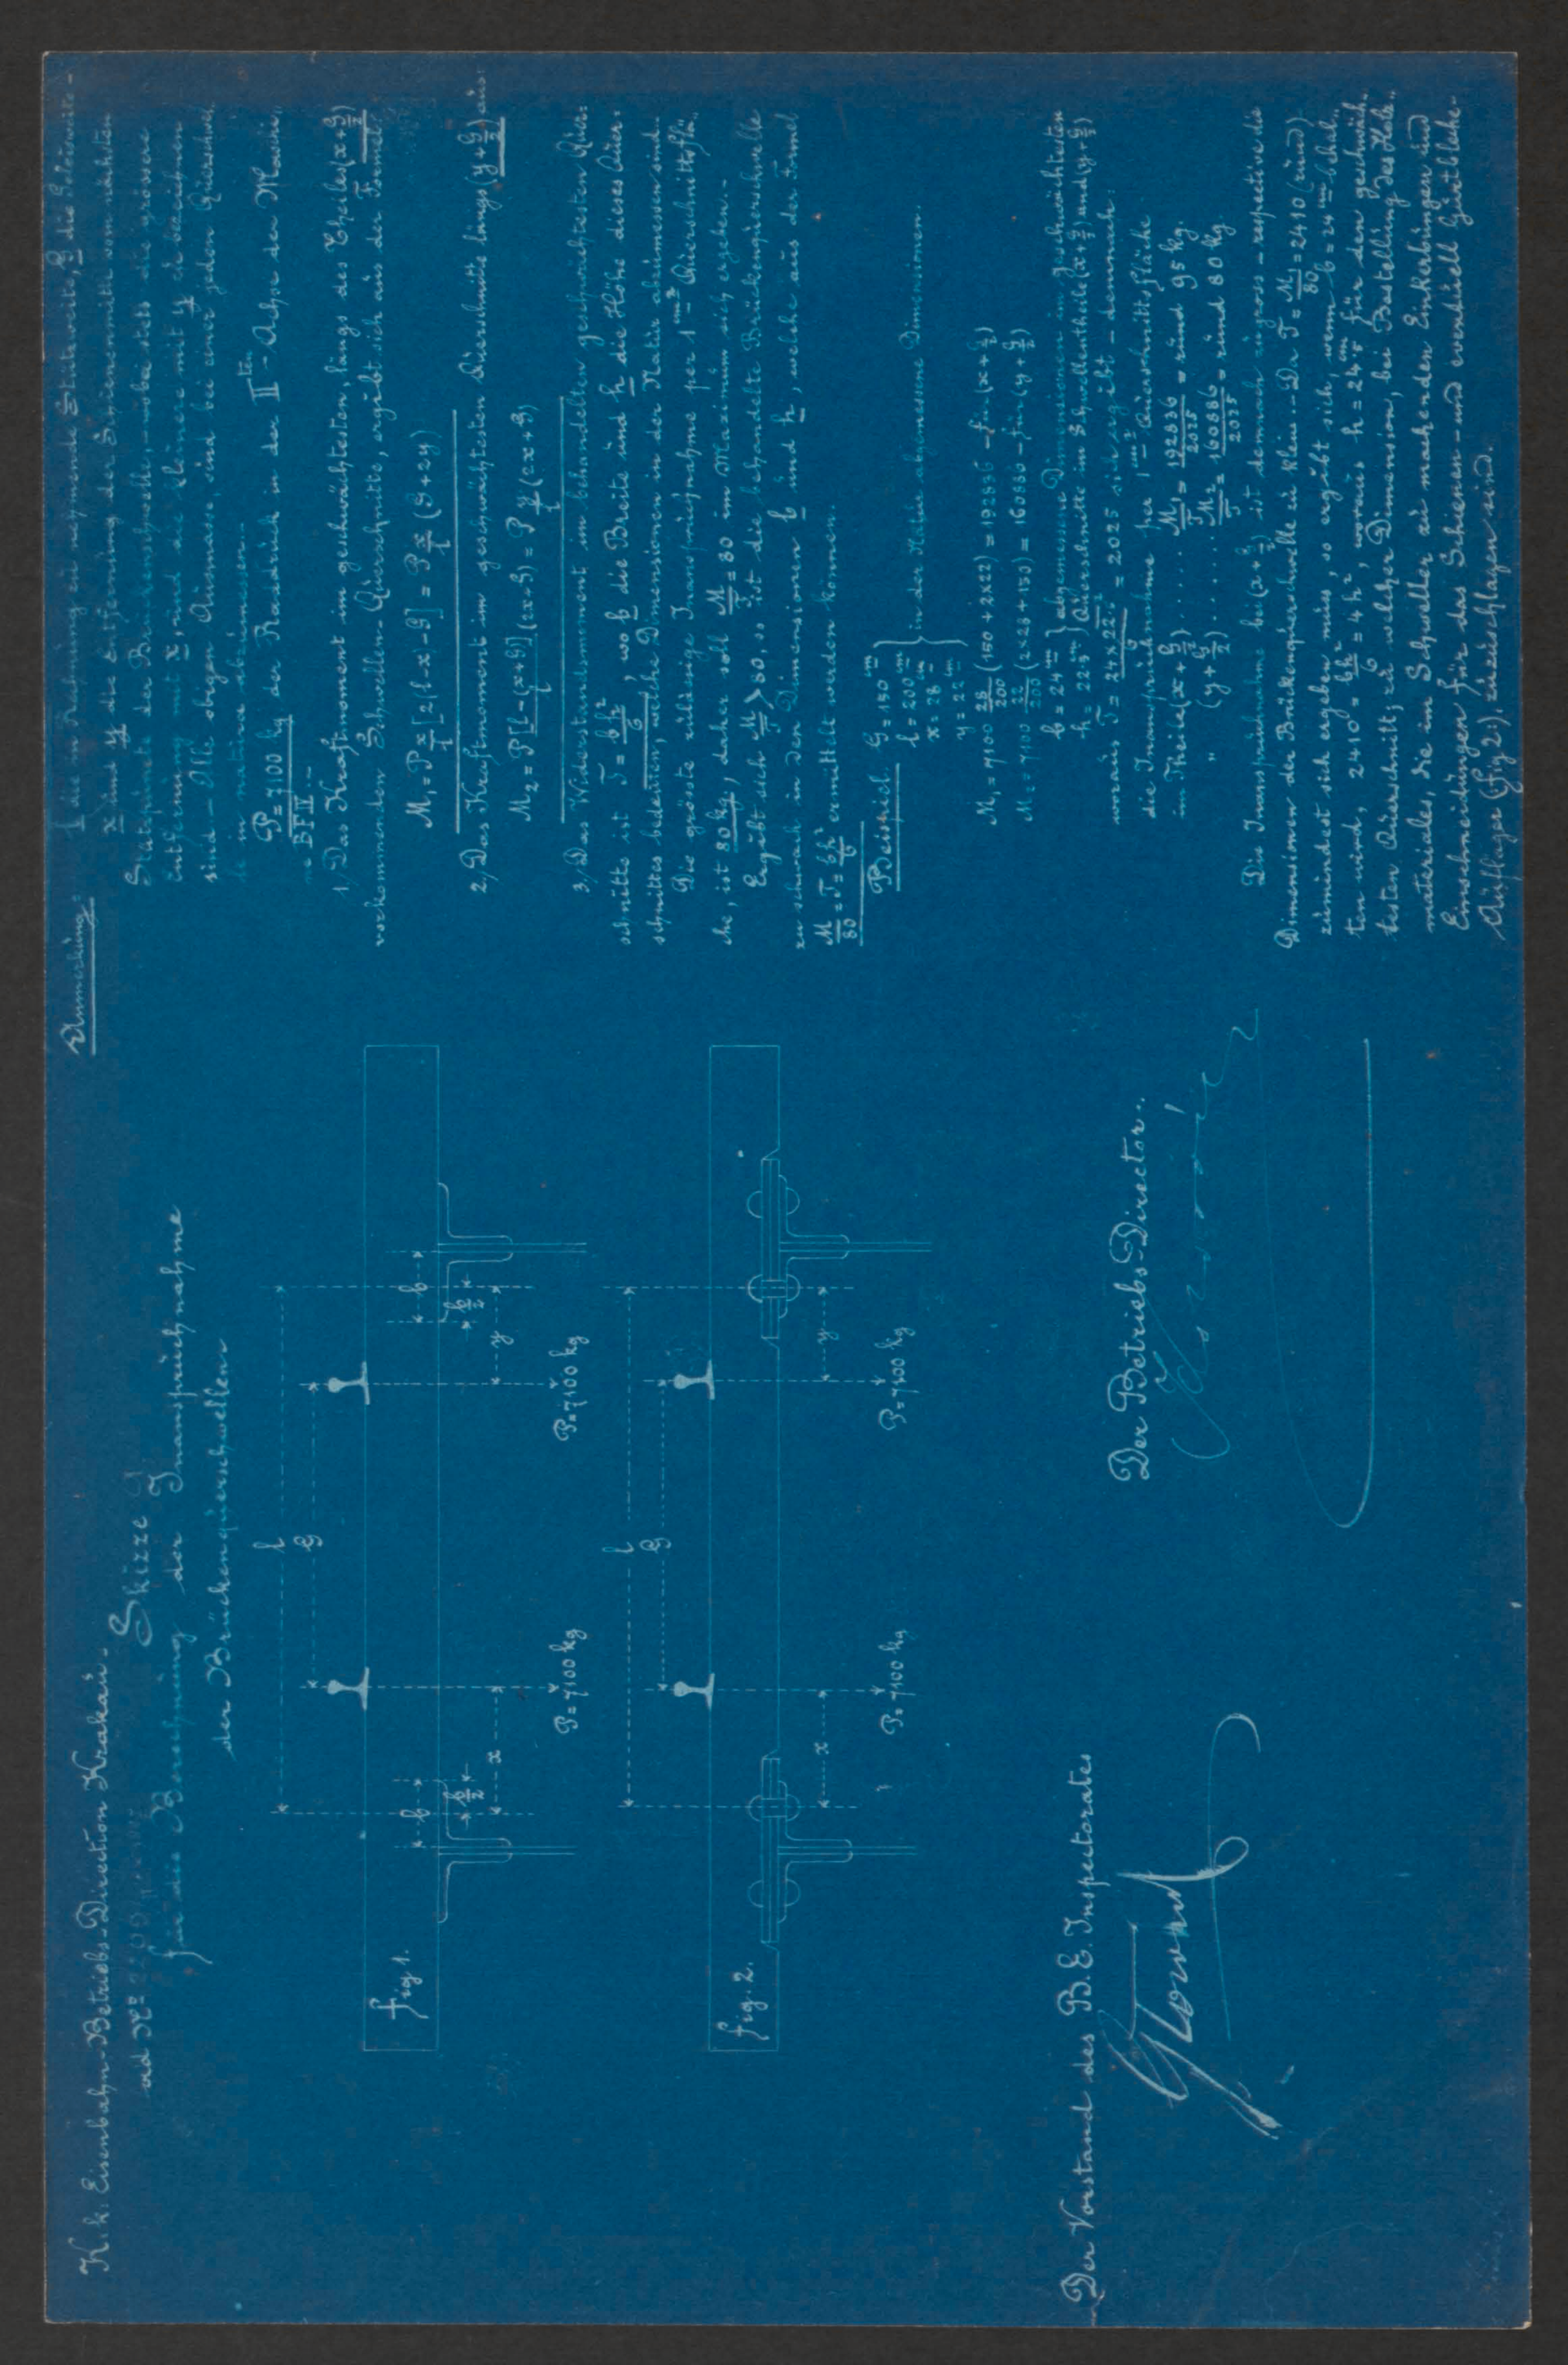 K. k. Eisenbahn-Betriebs-Direction Krakau.
ad Nº
Skizze
für die Berechnung der Inanspruchnahme
der Brückenquerschwellen
l
G
b
b/2
x
P=7100 kg
P=7100 kg
y
b
b/2
fig. 1.
l
G
x
P=7100 kg
P=7100 kg
y
fig. 2.
Der Vorstand des B. E. Inspectorates
Der Betriebs-Director.
Anmerkung:
die in Rechnung zu nehmende Stützweite, G die
x und y die Entfernung der Schienenmitte vom nächsten
Stützpunct der Brückenschwelle, wobei stets die grössere
Entfernung mit x, und die kleinere mit y zu bezeichnen
sind. – Alle obigen Ausmasse, sind bei einer jeden Querschwel-
le in natura abzumessen.
P = 7100 kg der Raddruck in der IIten Achse der Maschine
1, Das Kraftmoment im geschwächtesten, längs des Theiles (x + G/2)
vorkommenden Schwellen-Querschnitte, ergibt sich aus der Formel
M₁ = P x/l [2(l-x)-G] = P x/l (G+2y)
2, Das Kraftmoment im geschwächtesten Querschnitte längs (y + G/2) aus:
M₂ = P [l-(x+G)]/l (2x+G) = P y/l (2x+G)
3, Das Widerstandsmoment im behandelten geschwächtesten Quer-
schnitte ist J = bh²/6, wo b die Breite und h die Höhe dieses Quer-
schnittes bedeuten, welche Dimensionen in der Natur abzumessen sind.
Die grösste zulässige Inanspruchnahme per 1 cm² Querschnittsflä-
che, ist 80 kg, daher soll M/J = 80 im Maximum sich ergeben. –
Ergibt sich M/J > 80, so ist die behandelte Brückenquerschwelle
zu schwach in den Dimensionen b und h, welche aus der Formel
M/80 = J = bh²/6 ermittelt werden können.
Beispiel.
G = 150 cm
l = 200 cm
x = 28 cm
y = 22 cm
in der Natur abgemessene Dimensionen.
M₁ = 7100 28/200 (150 + 2x22) = 192836 – für (x + G/2)
M₂ = 7100 22/200 (2x28 + 150) = 160886 – für (y + G/2)
b = 24 cm
h = 22.5 cm
abgemessene Dimensionen im geschwächtesten
Querschnitte im Schwellentheile (x + G/2) und (y + G/2)
woraus J = 24 x 22.5²/6 = 2025 sich ergibt – demnach:
die Inanspruchnahme per 1 cm² Querschnittsfläche
im Theile (x + G/2) ..... M₁/J = 192836/2025 = rund 95 kg.
" (y + G/2) ..... M₂/J = 160886/2025 = rund 80 kg
Die Inanspruchnahme bei (x + G/2) ist demnach zu gross – respective die
Dimensionen der Brückenquerschwelle zu klein. – Da J = M₁/80 = 2410 (rund)
zumindest sich ergeben muss, so ergibt sich wenn b = 24 cm behal-
ten wird, 2410 = bh²/6 = 4h², woraus h = 24.5 cm für den geschwäch-
testen Querschnitt; zu welcher Dimension, bei Bestellung des Holz-
materiales, die im Schweller zu machenden Einkerbungen und
Einschneidungen für das Schienen- und eventuell Gurtbleche-
Auflager (fig 2). zuzuschlagen sind.